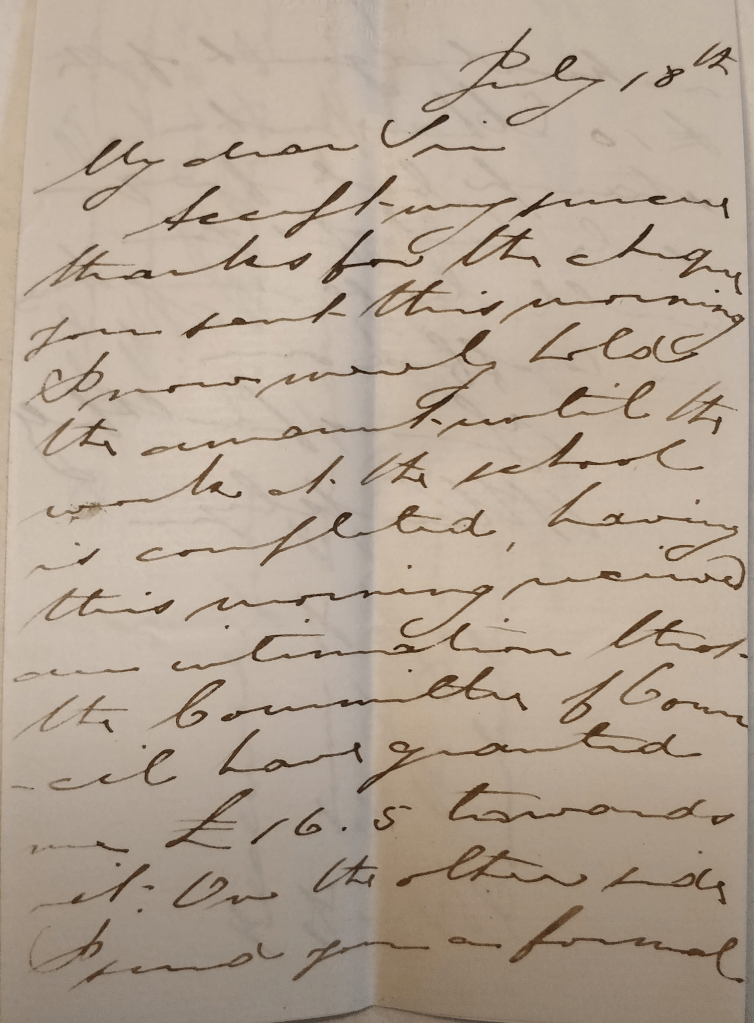 July 18th
My dear Sir
Accept my sincere
thanks for the cheque
you sent this morning
I now merely hold
the amount until the
work at the school
is completed, having
this morning received
an intimation that
the Committee of Coun
-cil have granted
me £16.5 towards
it. On the other side
I send you a formal